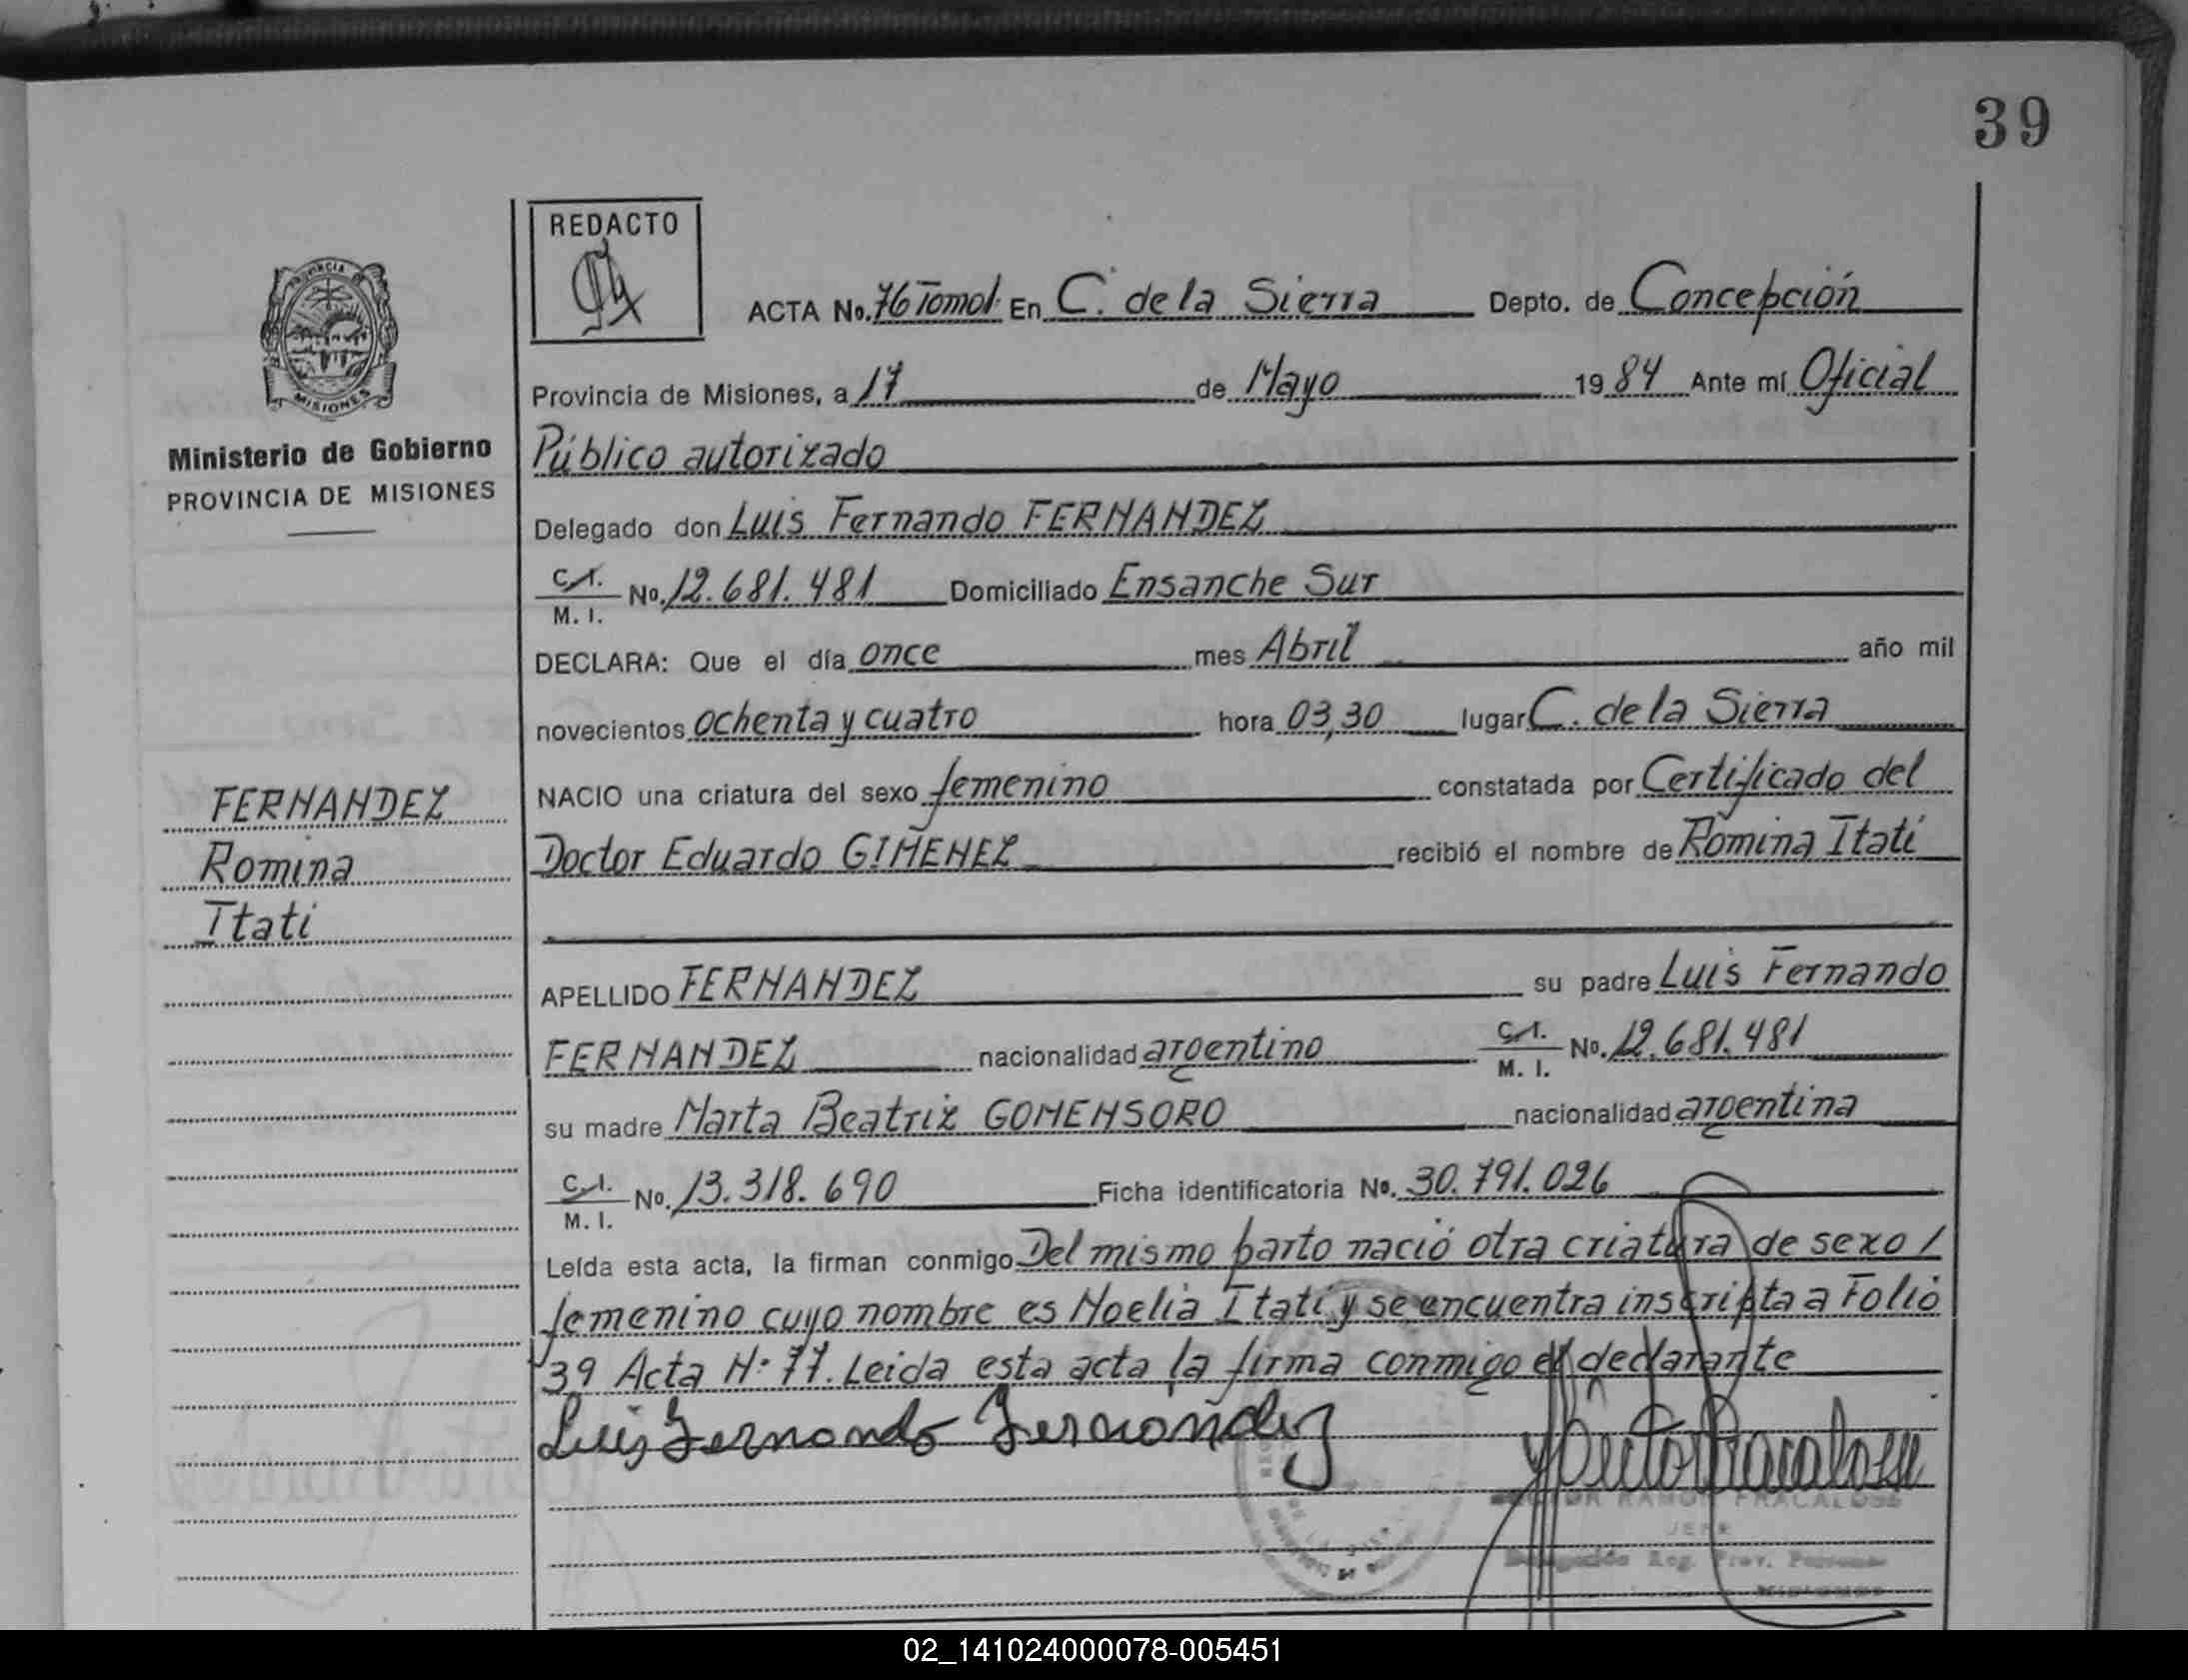 39
REDACTO
PROVINCIA
MISIONES
ACTA No. 76 Tomo I En C. de la Sierra Depto. de Concepción
Provincia de Misiones, a 17 de Mayo 19 84 Ante mí Oficial
Ministerio de Gobierno
PROVINCIA DE MISIONES
Público autorizado
Delegado don Luis Fernando FERNANDEZ
C.I. M. I. No. 12.681.481 Domiciliado Ensanche Sur
DECLARA: Que el día once mes Abril año mil
novecientos ochenta y cuatro hora 03,30 lugar C. de la Sierra
NACIO una criatura del sexo femenino constatada por Certificado del
FERNANDEZ
Romina
Itati
Doctor Eduardo GIMENEZ recibió el nombre de Romina Itatí
APELLIDO FERNANDEZ su padre Luis Fernando
FERNANDEZ nacionalidad argentino C.I. M. I. No. 12.681.481
su madre Marta Beatriz GOMENSORO nacionalidad argentina
C.I. M. I. No. 13.318.690 Ficha identificatoria No. 30.791.026
Leída esta acta, la firman conmigo Del mismo parto nació otra criatura de sexo /
femenino cuyo nombre es Noelia Itatí y se encuentra inscripta a Folio
39 Acta N: 77. Leida esta acta la firma conmigo el declarante
Luis Fernando Fernández
RAMON FRACALOSSI
JEFE
Delegación Reg. Prov.
02_141024000078-005451